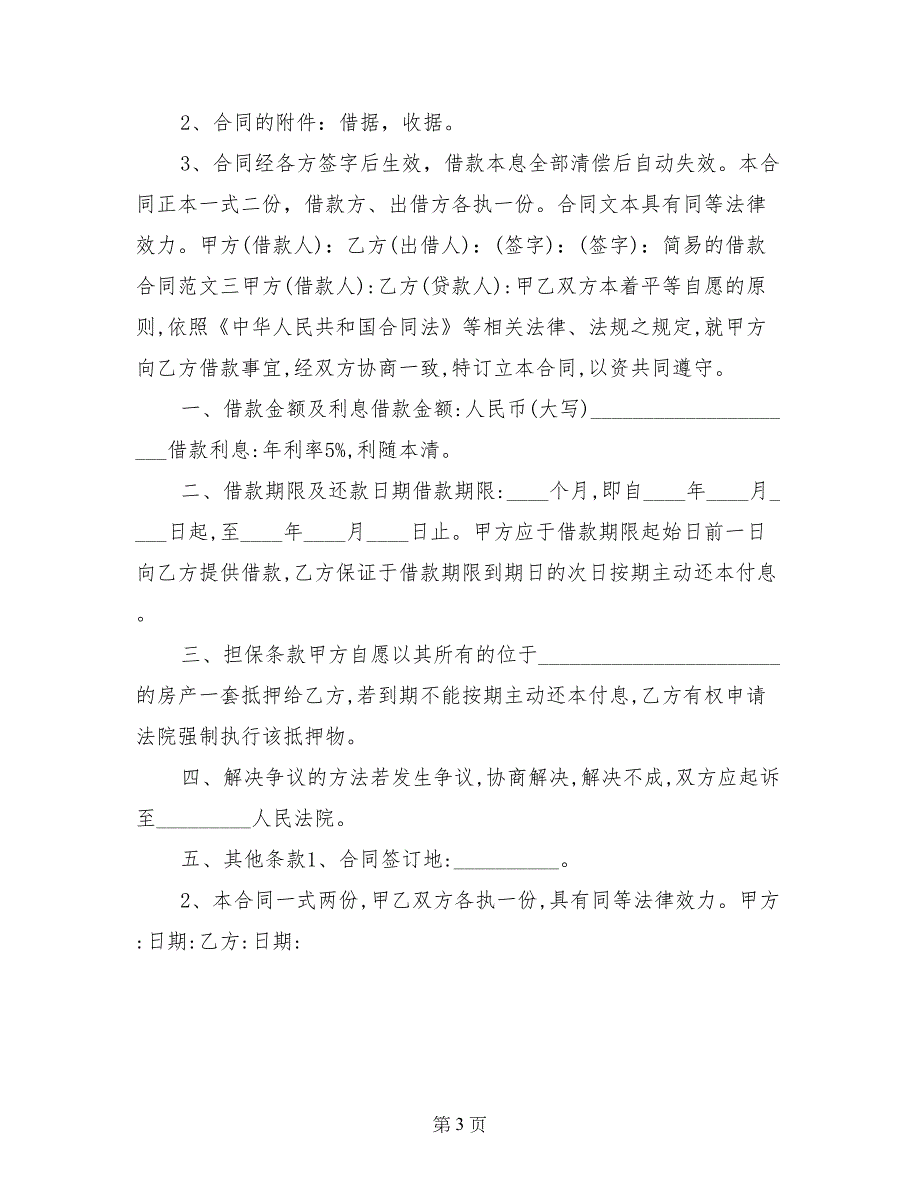 2、合同的附件：借据，收据。
3、合同经各方签字后生效，借款本息全部清偿后自动失效。本合
同正本一式二份，借款方、出借方各执一份。合同文本具有同等法律
效力。甲方(借款人)：乙方(出借人)：(签字)：(签字)：简易的借款
合同范文三甲方(借款人):乙方(贷款人):甲乙双方本着平等自愿的原
则,依照《中华人民共和国合同法》等相关法律、法规之规定,就甲方
向乙方借款事宜,经双方协商一致,特订立本合同,以资共同遵守。
一、借款金额及利息借款金额:人民币(大写)__________________
___借款利息:年利率5%,利随本清。
二、借款期限及还款日期借款期限:____个月,即自____年____月_
___日起,至____年____月____日止。甲方应于借款期限起始日前一日
向乙方提供借款,乙方保证于借款期限到期日的次日按期主动还本付息
。
三、担保条款甲方自愿以其所有的位于_______________________
的房产一套抵押给乙方,若到期不能按期主动还本付息,乙方有权申请
法院强制执行该抵押物。
四、解决争议的方法若发生争议,协商解决,解决不成,双方应起诉
至_________人民法院。
五、其他条款1、合同签订地:__________。
2、本合同一式两份,甲乙双方各执一份,具有同等法律效力。甲方
:日期:乙方:日期:
第 3 页